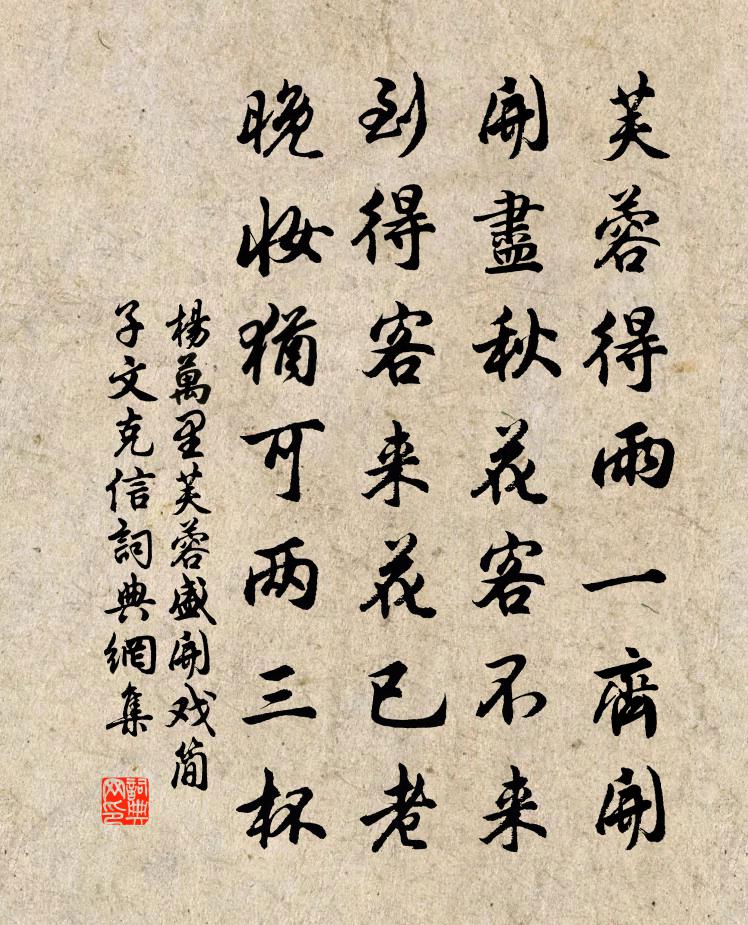 芙蓉得雨一齊開
開盡秋花客不来
到得客来花已老
晚妆猶可两三杯
楊萬里芙蓉盛開戏简
子文克信詞典網集
詞典网印